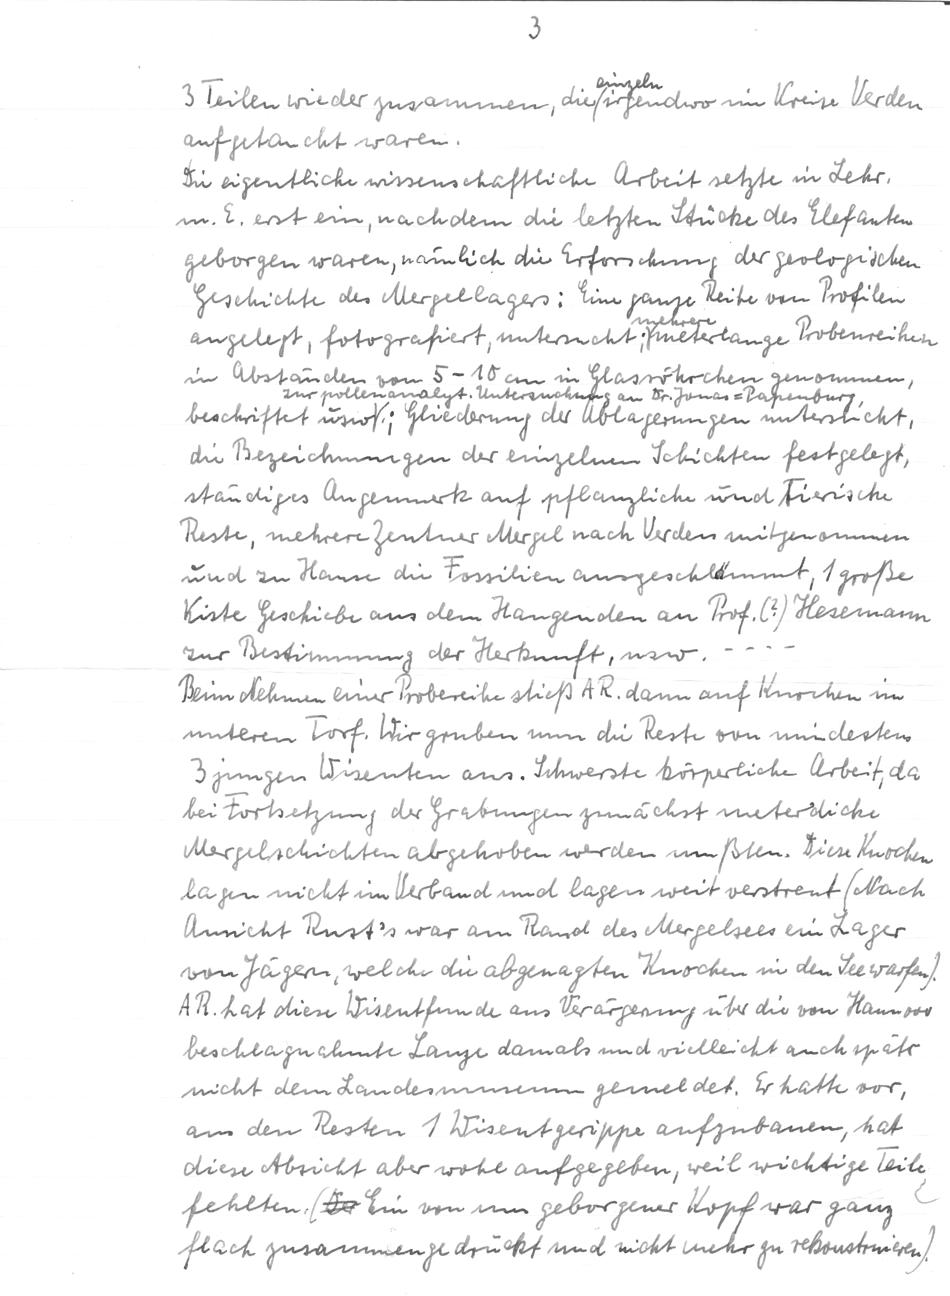 3
3 Teilen wieder zusammen, die einzeln irgendwo im Kreise Verden
aufgetaucht waren.
Die eigentliche wissenschaftliche Arbeit setzte in Lehr.
m. E. erst ein, nachdem die letzten Stücke des Elefanten
geborgen waren, nämlich die Erforschung der geologischen
Geschichte des Mergellagers: Eine ganze Reihe von Profilen
angelegt, fotografiert, untersucht; mehrere meterlange Probenreihen
in Abständen von 5-10 cm in Glasröhrchen genommen,
zur pollenanalyt. Untersuchung an Dr. Jonas=Papenburg,
beschriftet usw.; Gliederung der Ablagerungen untersucht,
die Bezeichnungen der einzelnen Schichten festgelegt,
ständiges Augenmerk auf pflanzliche und tierische
Reste, mehrere Zentner Mergel nach Verden mitgenommen
und zu Hause die Fossilien ausgeschlämmt, 1 große
Kiste Geschiebe aus dem Hangenden an Prof. (?) Hesemann
zur Bestimmung der Herkunft, usw. - - - -
Beim Nehmen einer Probereihe stieß AR. dann auf Knochen im
unteren Torf. Wir gruben nun die Reste von mindestens
3 jungen Wisenten aus. Schwerste körperliche Arbeit, da
bei Fortsetzung der Grabungen zunächst meterdicke
Mergelschichten abgehoben werden mußten. Diese Knochen
lagen nicht im Verband und lagen weit verstreut (Nach
Ansicht Rust's war am Rand des Mergelsees ein Lager
von Jägern, welche die abgenagten Knochen in den See warfen).
AR. hat diese Wisentfunde aus Verärgerung über die von Hannover
beschlagnahmte Lanze damals und vielleicht auch später
nicht dem Landesmuseum gemeldet. Er hatte vor,
aus den Resten 1 Wisentgerippe aufzubauen, hat
diese Absicht aber wohl aufgegeben, weil wichtige Teile
fehlten. (Der Ein von uns geborgener Kopf war ganz
flach zusammengedrückt und nicht mehr zu rekonstruieren).